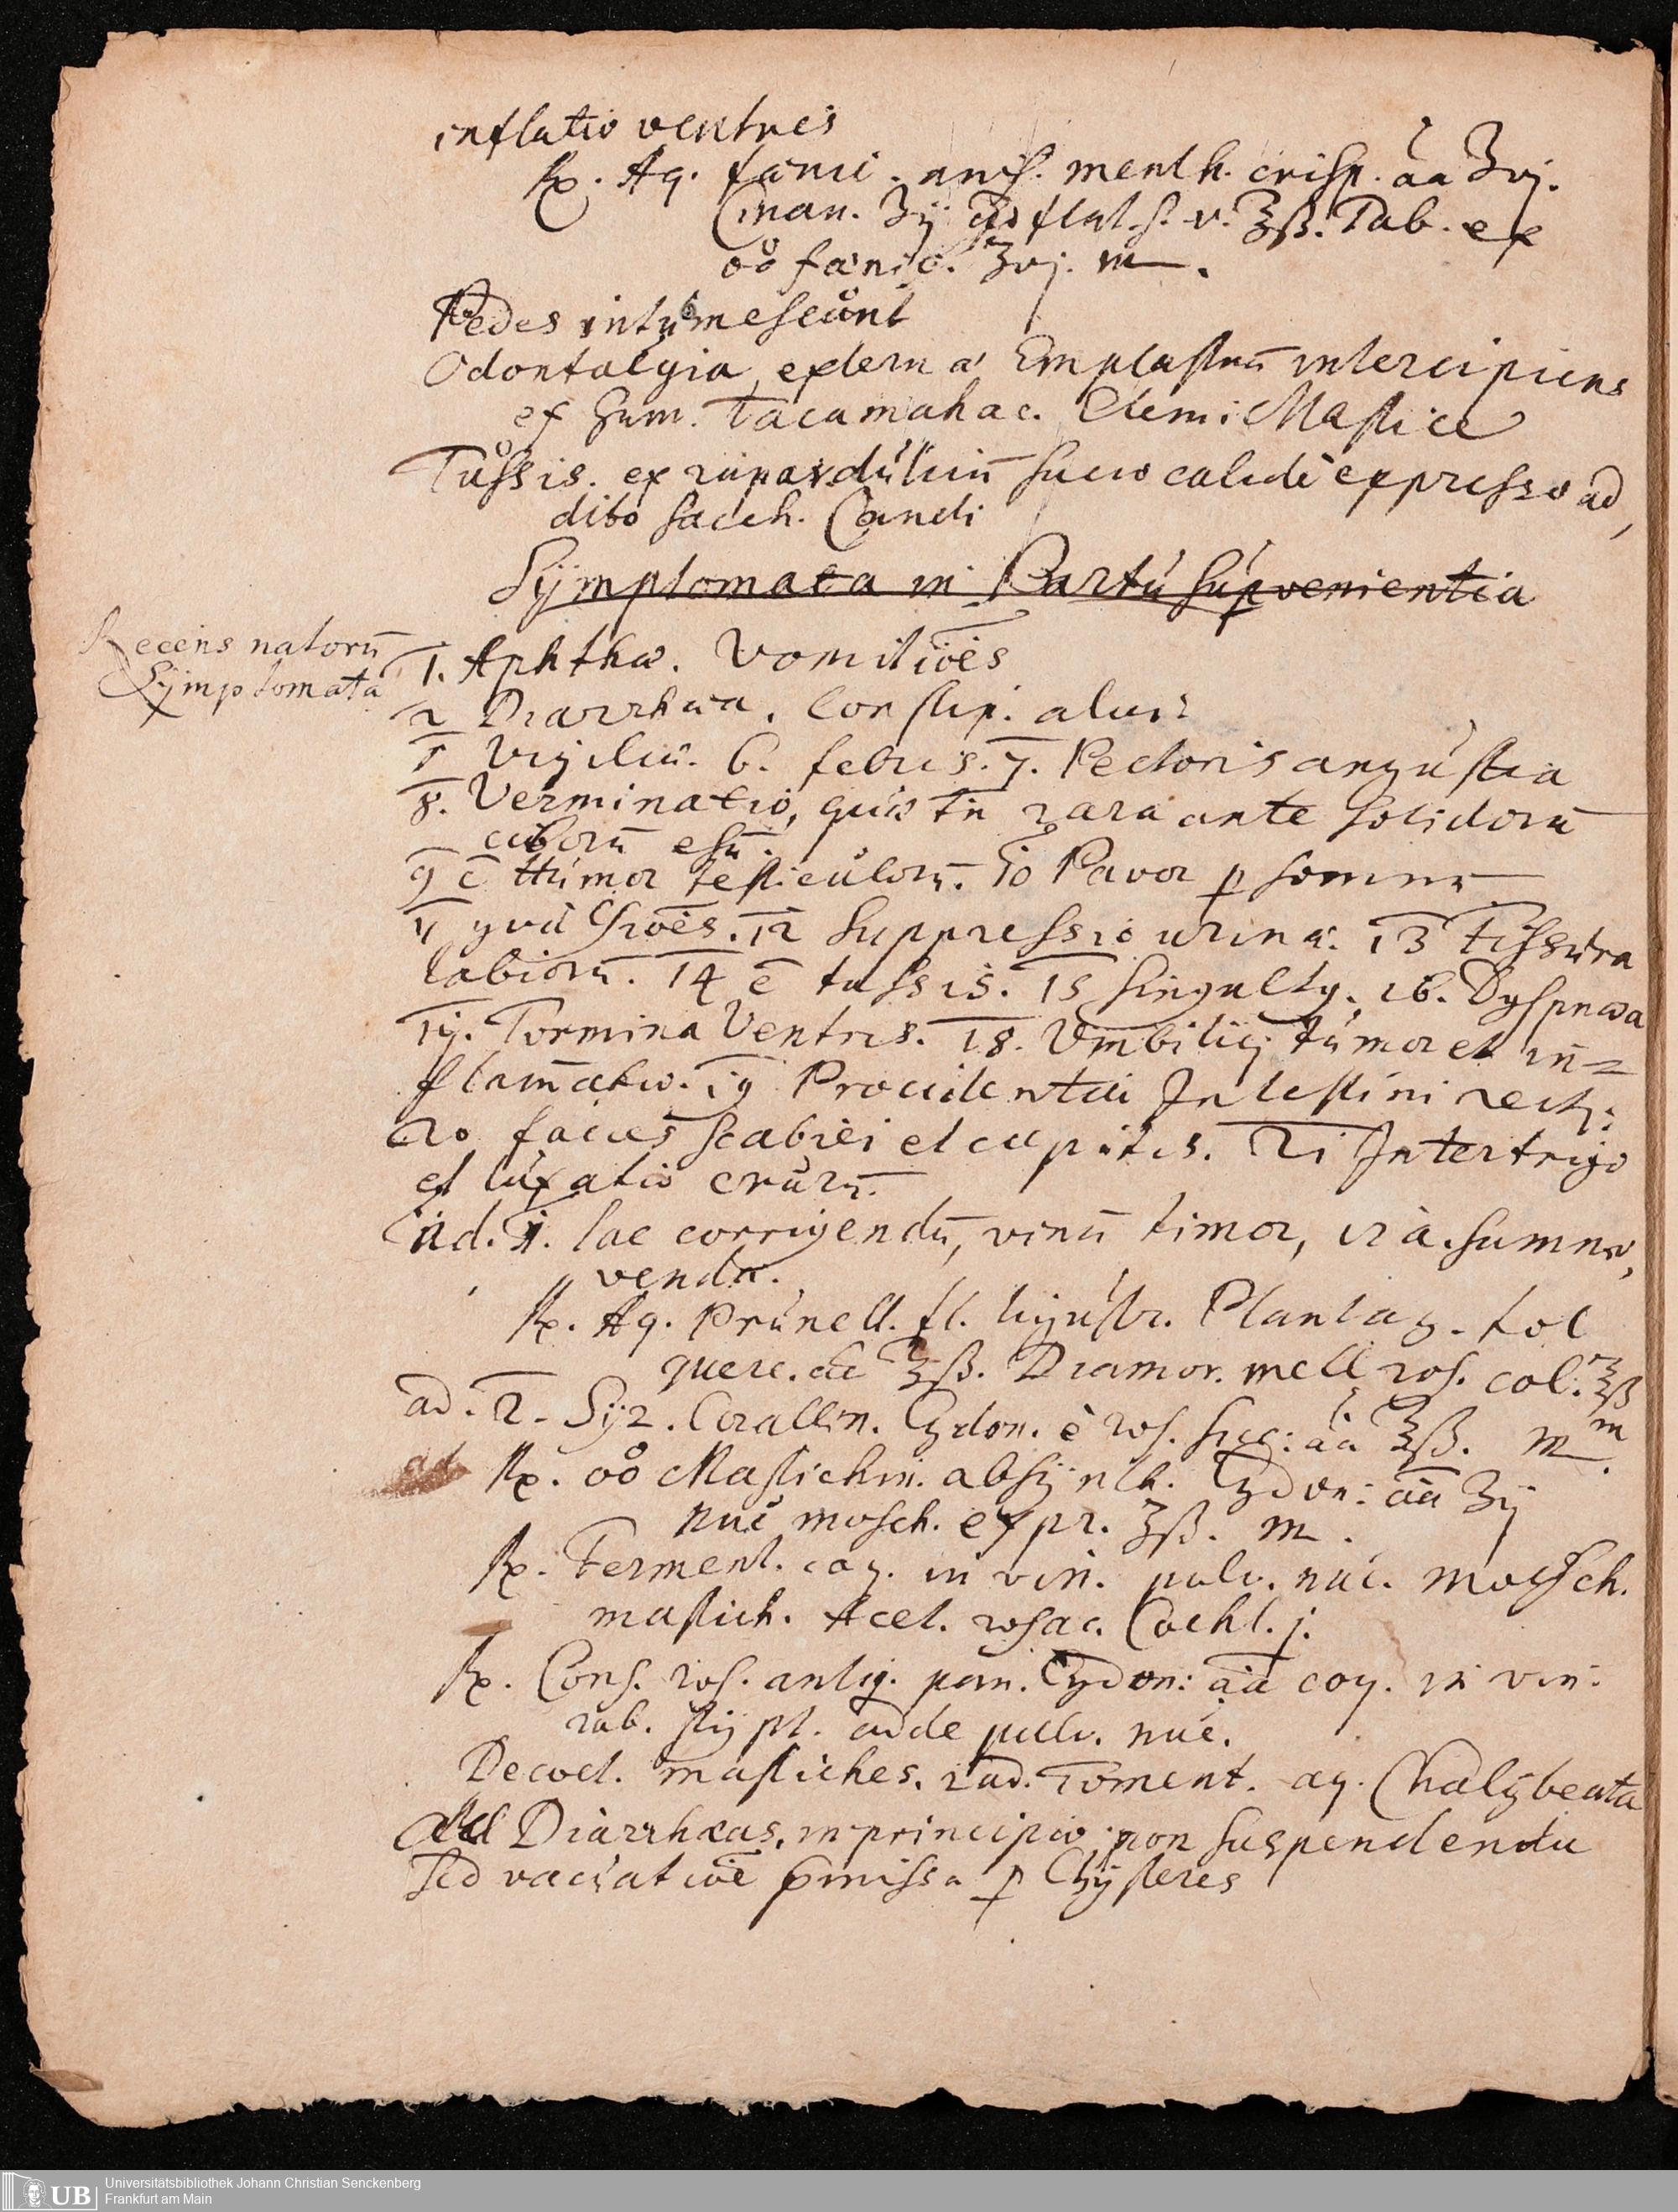 inflatio ventris
℞. Aq. fænic. anis. menth. crisp. āā ʒvj.
Cinam. ʒij flat. s. v. ʒß. Tab. ex
oô fænic. ʒvj. m.
Pedes intumescunt
Odontalgia, extern a Emplastrū intercipiens
ex Gum. Tacamahac. Elemi Mastice
Tussis. ex rapar. dulciū succo calide expresso ad,
dito sacch. Candi
Symptomata in Partu supvenientia
Recens natorū
Symptomata
1. Aphthæ. Vomitiōēs
2 Diarrhæa. Constip. alvi
5 Vigiliæ. 6. febris. 7. Pectoris angustia
8. Verminatio, quæ tn̄ rara ante solidorū
ciborū esū.
9 ē tumor testiculorū. 10 Pavor p somnū
12 Suppressio urinæ. 13 fissura
labiorū. 14 ē tussis. 15 Singultq. 16. Dyspnæa
17. Tormina Ventris. 18. Vmbilici tumor et in=
flam̄atio. 19 Procidentia Intestini recti.
20 facies scabiei et capitis. 21 Intertrigo
et luxatio crurū.
Ad. 1. lac corrigendū, vinū timor, ira. summo,
venda.
℞. Aq. Prunell. fl. ligustr. Plantag. fol
querc. āā ℥ß. Diamor. mell ros. col. ℥ß
m
ad. 2. Syr. Corallin. Cydon. è ros. sicc: āā ℥ß. m.
ad
℞. oô Mastichin. absynth. Cydon: āā ʒij
nuc mosch. expr. ʒß. m.
℞. Ferment. coq. in vin. pulv. nuc. mosch.
mastich. Acet. rosac. Cochl. j.
℞. Cons. ros. antiq. pan. Cydon: āā coq. in vin:
rub. stypt. adde pulv. nuc.
Decoct. mastiches. rad. Torment. aq. Chalybeata
Ad Diarrhæas, in principio, non suspendenda
Sed vacuatiōē pmissa p Clysteres
Universitätsbibliothek Johann Christian Senckenberg
Frankfurt am Main
UB